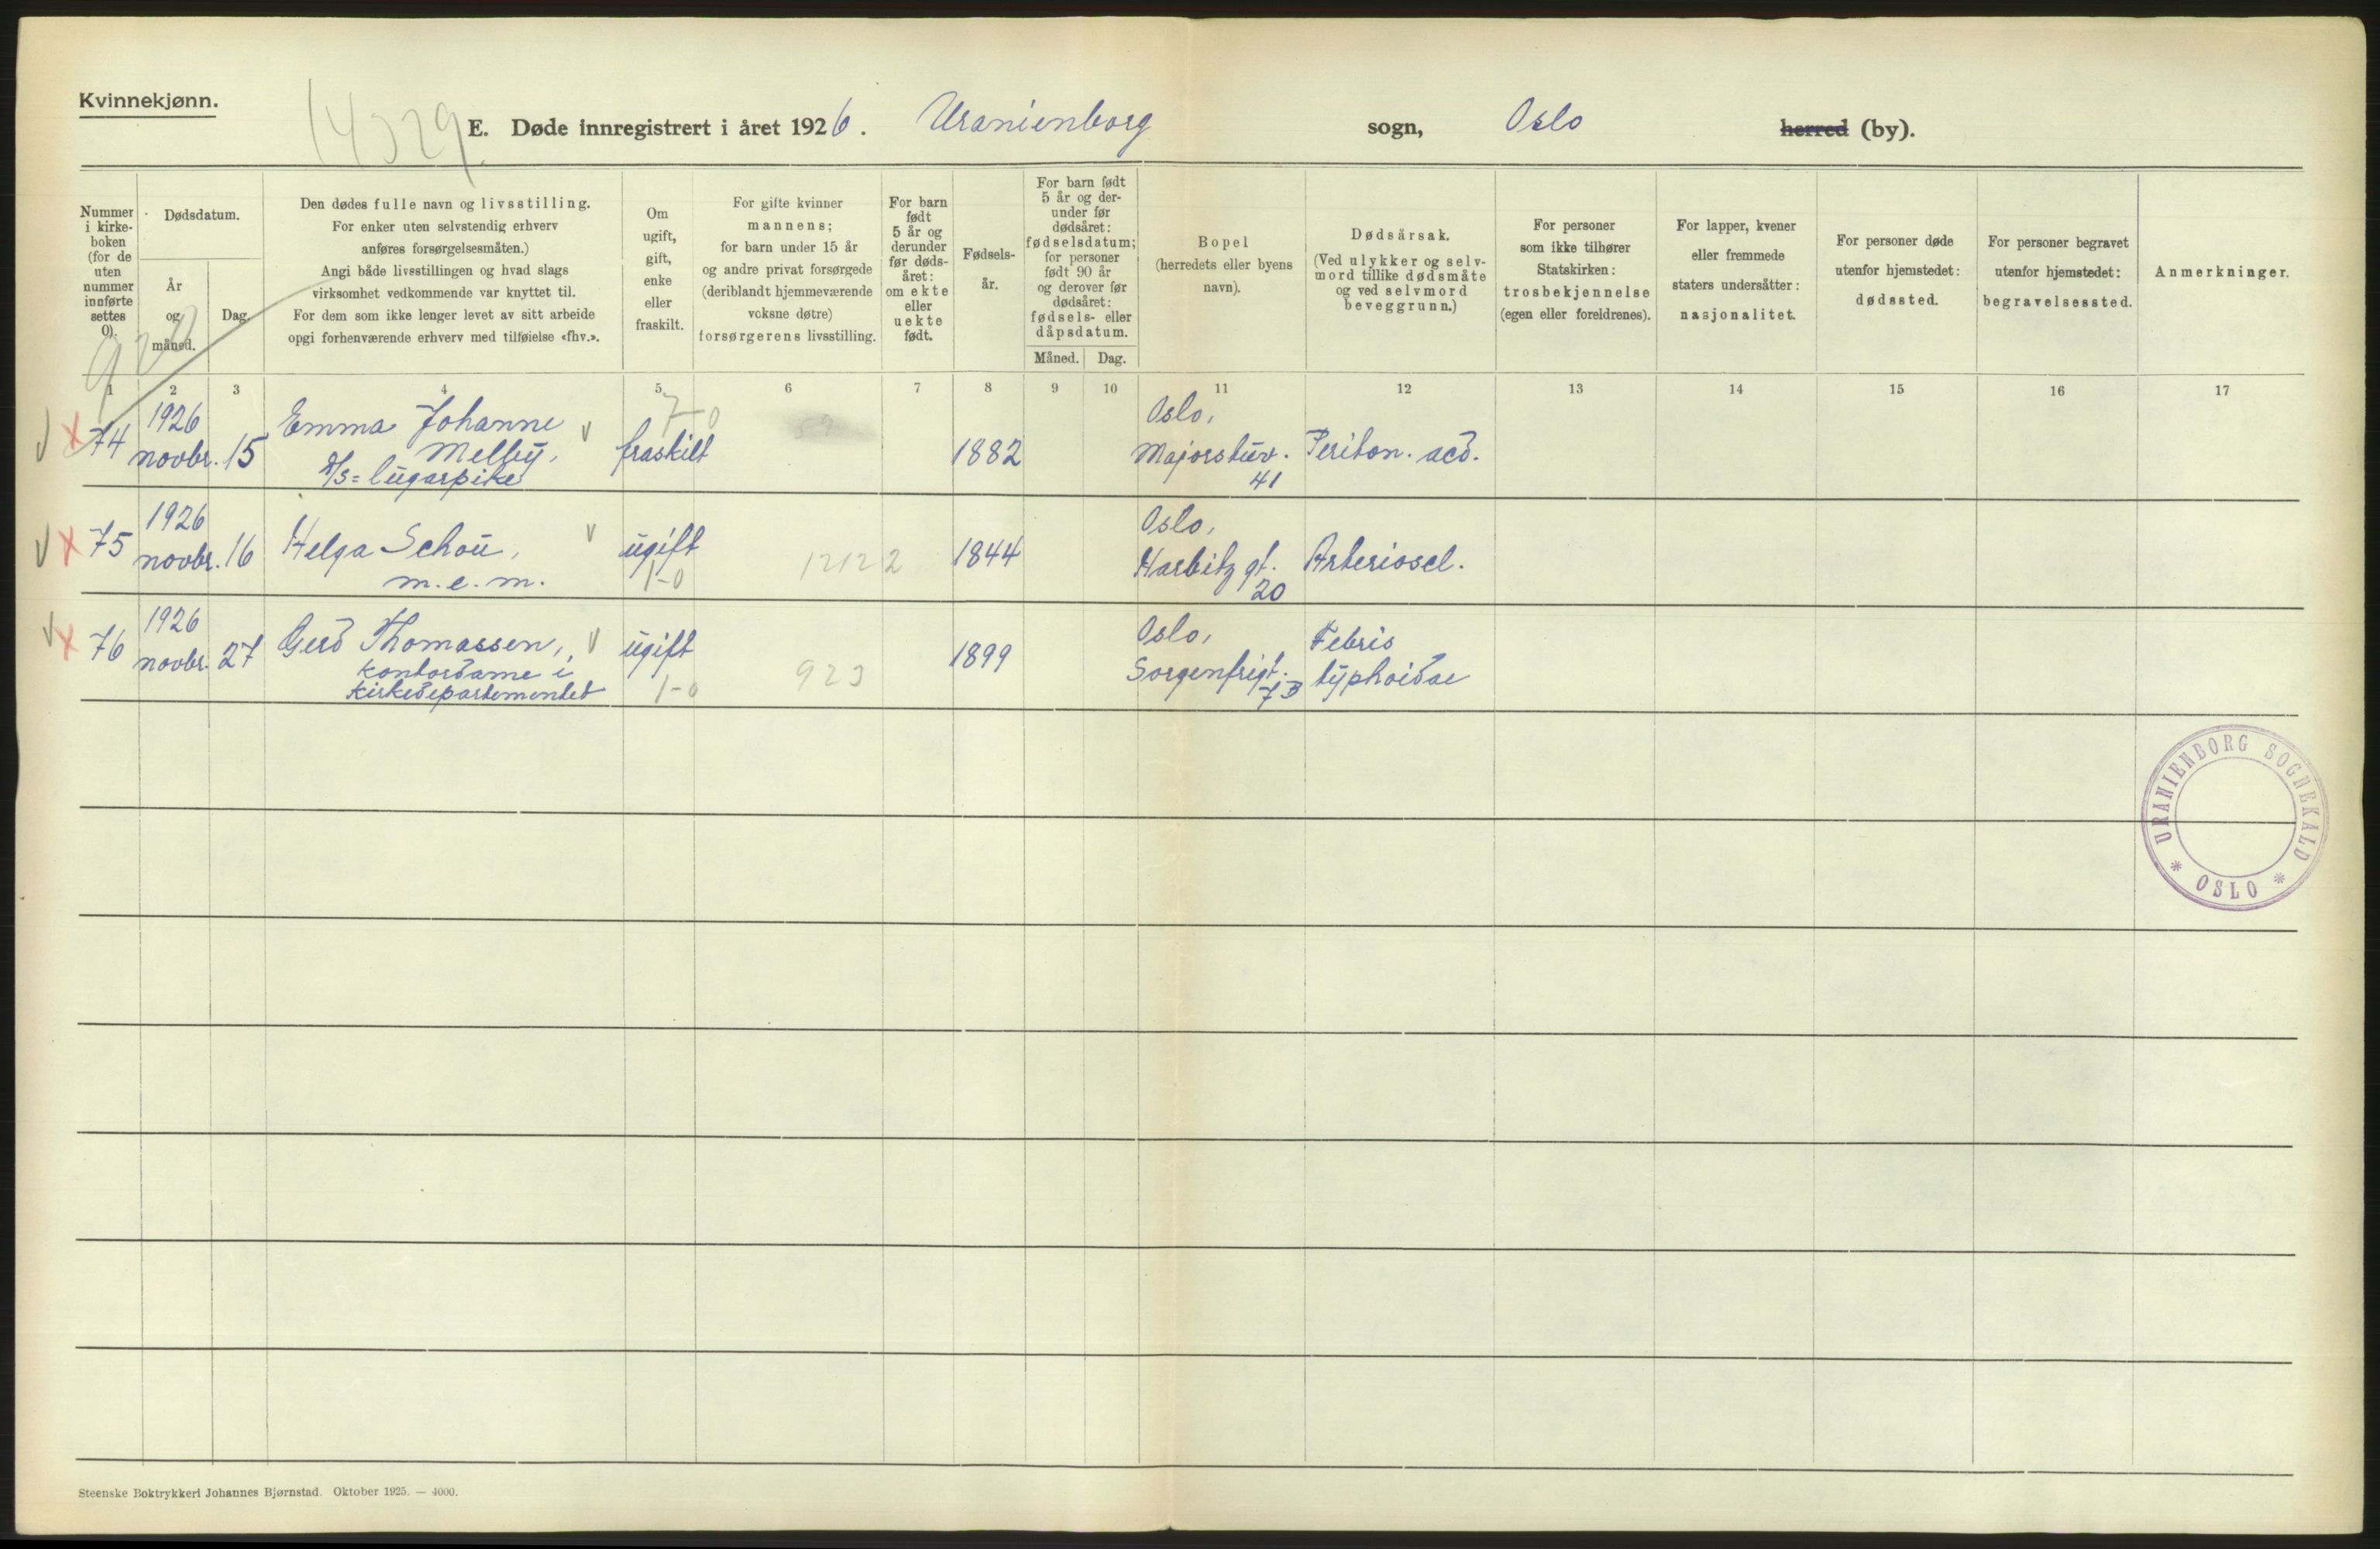 Kvinnekjønn.
E. Døde innregistrert i året 1926. Uranienborg sogn, Oslo herred (by).
Nummer i kirke-
boken
(for de
uten
nummer
innførte
settes
0).
Dødsdatum.
År
og
måned.
Dag.
Den dødes fulle navn og livsstilling.
For enker uten selvstendig erhverv
anføres forsørgelsesmåten.)
Angi både livsstillingen og hvad slags
virksomhet vedkommende var knyttet til.
For dem som ikke lenger levet av sitt arbeide
opgi forhenværende erhverv med tilføielse «fhv.».
Om
ugift,
gift,
enke
eller
fraskilt.
For gifte kvinner
mannens;
for barn under 15 år
og andre privat forsørgede
(deriblandt hjemmeværende
voksne døtre)
forsørgerens livsstilling.
For barn
født
5 år og
derunder
før døds-
året:
om ekte
eller
uekte
født.
Fødsels-
år.
For barn født
5 år og der-
under før
dødsåret:
fødselsdatum;
for personer
født 90 år
og derover før
dødsåret:
fødsels- eller
dåpsdatum.
Måned. Dag.
Bopel
(herredets eller byens
navn).
Dødsårsak.
(Ved ulykker og selv-
mord tillike dødsmåte
og ved selvmord
beveggrunn.)
For personer
som ikke tilhører
Statskirken:
trosbekjennelse
(egen eller foreldrenes).
For lapper, kvener
eller fremmede
staters undersåtter:
nasjonalitet.
For personer døde
utenfor hjemstedet:
dødssted.
For personer begravet
utenfor hjemstedet:
begravelsessted.
Anmerkninger.
1 2 3 4 5 6 7 8 9 10 11 12 13 14 15 16 17
74 1926 novbr. 15 Emma Johanne Melby, fraskilt 1882 Oslo, Majorstuv. 41 Periton. acd.
lugarpike
75 1926 novbr. 16 Helga Schou, ugift 12122 1844 Oslo, Harbitz gt. 20 Arterioscl.
m.e.m. 1-0
76 1926 novbr. 27 Gerd Thomassen, ugift 923 1899 Oslo, Sorgenfrigt. 7B Febris typhoidae
kontordame i
kirkedepartementet 1-0
URANIENBORG SOGNEKALD
* OSLO *
Steenske Boktrykkeri Johannes Bjørnstad. Oktober 1925. — 4000.